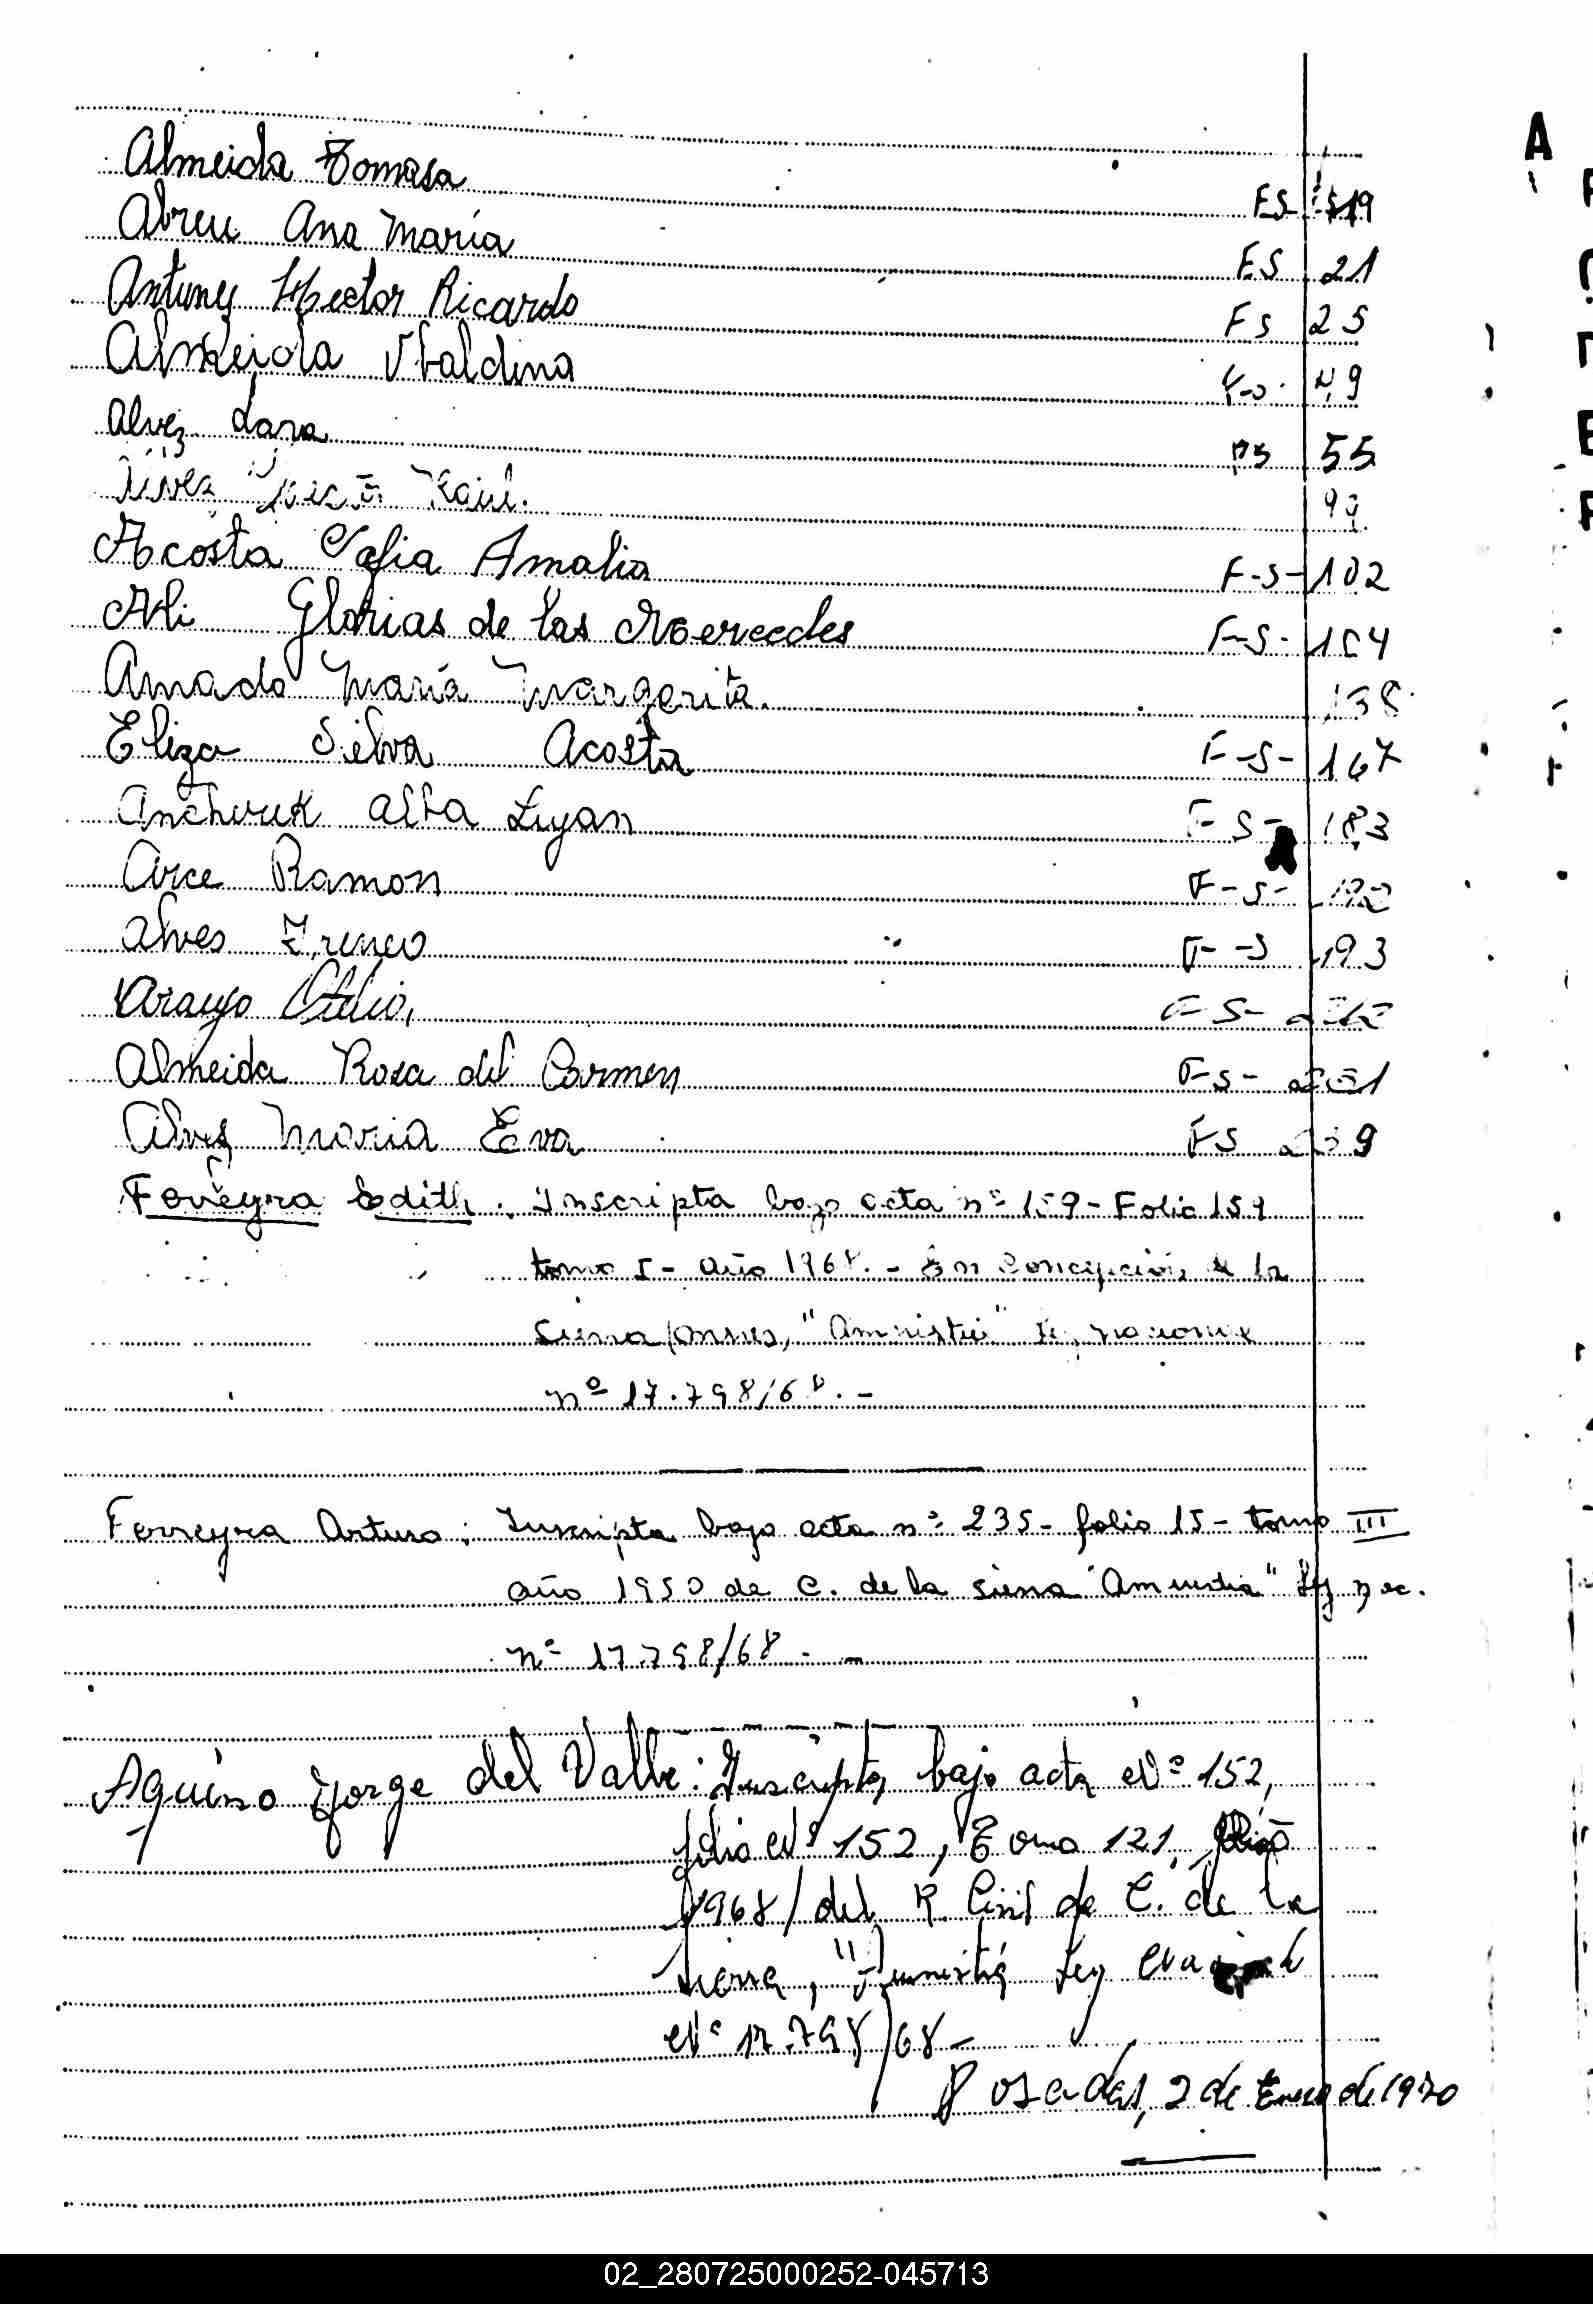 A
Almeida Tomasa FS 19
Abreu Ana María FS 21
Antunez Hector Ricardo FS 25
Almeida Ubaldina Fo. 49
Alvez Lara FS 55
Alvez 99
Acosta Sofia Amalia F-S-102
Ali Glorias de las Mercedes F-S-104
Amado María Margarita. 138
Eliza Silva Acosta F-S-167
Anchuk Alba Liyan F-S-183
Arce Ramon F-S-192
Alves Ireneo F-S 193
Araujo Otilio, F-S-
Almeida Rosa del Carmen FS-
Alvez Maria Eva FS
Ferreyra Edith. Inscripta bajo acta nº 159-Folio 159
tomo I- año 1968.- En Concepción de la
Sierra Mnes, "Amnistia" ley nacional
nº 17.798/68.-
Ferreyra Arturo: Inscripta bajo acta nº 235- folio 15- tomo III
año 1950 de C. de la Sierra "Amnistia" ley nac.
nº 17.798/68.-
Aquino Jorge del Valle: Inscripta bajo acta Nº 152,
folio Nº 152, Tomo 121,
1968/ del R. Civil de C. de la
Sierra, "Amnistía Ley Nacional
Nº 17.798/68-
Posadas, 2 de Enero de 1970
02_280725000252-045713